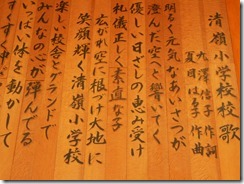 清嶺小学校校歌
大澤信子 作詞
夏目はる子 作曲
明るく元気なあいさつが
澄んだ空へと響いてく
優しい日ざしの恵み受け
礼儀正しく素直な子
右がれ空に根づけ大地に
笑顔輝く清嶺小学校
楽しい校舎とグランドで
みんなの心が弾んでる
いっぱい体を動かして
すくすく伸び